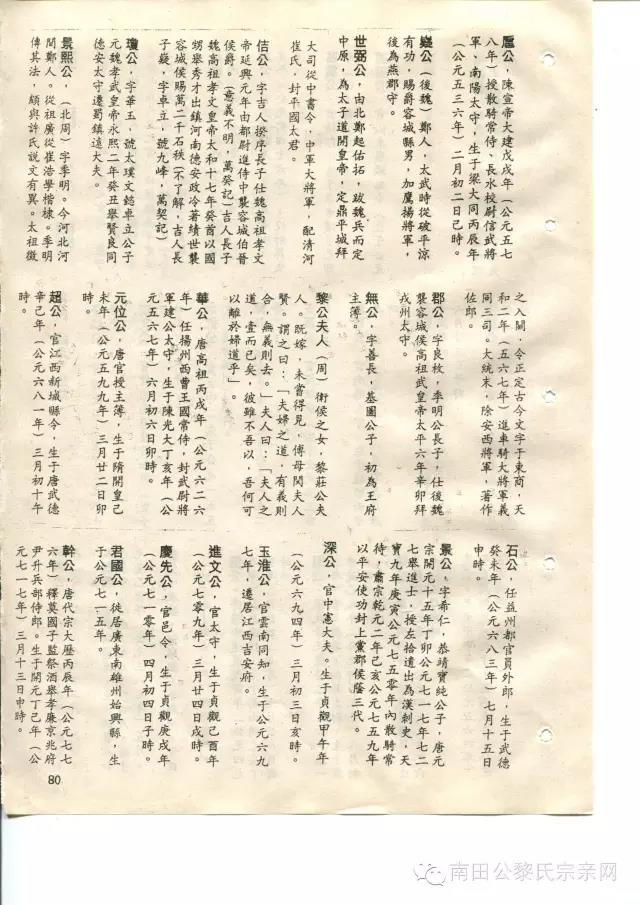 扈公，陳宣帝大建戊戌年（公元五七
八年）授散騎常侍、長水校尉信武將
軍、南陽太守，生于梁大同丙辰年
（公元五三六年）二月初二日己時。
嶷公（後魏）鄭人，太武時從破平涼
有功，賜爵容城縣男，加鷹揚將軍，
後為燕郡守。
世弼公，由北鄭起佑拓，跋魏兵而定
中原，為太子道開皇帝，定鼎平城拜
大司從中書令，中軍大將軍，配清河
崔氏，封平國太君。
佶公，字吉人揆序長子仕魏高祖孝文
帝延興元年由都尉進侍中襲容城伯晉
侯爵。（意義不明，萬癸記）吉人長子
魏高祖孝文皇帝太和十七年癸酉以國
甥舉秀才出鎮河南德安政泠著績世襲
容城侯賜萬二千石秩（不了解，吉人長
子嶷，字卓立，號九峰，萬契記）
瓊公，字華玉，號太璞文懿卓立公子
元魏孝武皇帝永熙二年癸丑舉賢良同
德安太守遷蜀鎮遠大夫。
景熙公，（北周）字季明。今河北河
間鄭人。從祖廣從崔浩學楷棣。季明
傳其法，頗與許氏說文有異。太祖徵
之入關，令正定古今文字于東商，天
和二年（五六七年）進車騎大將軍義
同三司。大統末，除安西將軍，著作
佐郎。
郡公，字良枚，季明公長子，仕後魏
襲容城侯高祖武皇帝太平六年辛卯拜
戎州太守。
無公，字善長，基圖公子，初為王府
主薄。
黎公夫人（周）衛侯之女，黎莊公夫
人。既嫁，未嘗得見，傅母閔夫人
賢。謂之曰：「夫婦之道，有義則
合，無義則去。」夫人曰：「夫人之
道，壹而已矣，彼雖不吾以，吾何可
以離於婦道乎」。
華公，唐高祖丙戌年（公元六二六
年）任揚州西曹王國常侍，封武尉將
軍建公太守，生于陳光大丁亥年（公
元五六七年）六月初六日卯時。
元位公，唐官授主薄，生于隋開皇己
未年（公元五九九年）三月廿二日卯
時。
超公，官江西新城縣令，生于唐武德
辛己年（公元六八一年）三月初十午
時。
石公，任益州都官員外郎，生于武德
癸未年（公元六八三年）七月十五日
申時。
景公，字希仁，恭靖寶純公子，唐元
宗開元十五年丁卯公元七一七年七二
七舉進士，授左拾遺出為漢刺史，天
寶九年庚寅公元七五零年內散騎常
待，肅宗乾元二年己亥公元七五九年
以平安使功封上黨郡侯蔭三代。
深公，官中憲大夫。生于貞觀甲午年
（公元六九四年）三月初三日亥時。
玉淮公，官雲南同知，生于公元六九
七年，遷居江西吉安府。
進文公，官太守，生于貞觀己酉年
（公元七零九年）三月廿四日戌時。
慶先公，官邑令，生于貞觀庚戌年
（公元七一零年）四月初四日子時。
君國公，徒居廣東南雄州始興縣，生
于公元七一五年。
幹公，唐代宗大歷丙辰年（公元七七
六年）釋莫國子監祭酒舉孝廉京兆府
尹升兵部侍郎。生于開元丁己年（公
元七一七年）三月十三日申時。
80
南田公黎氏宗亲网